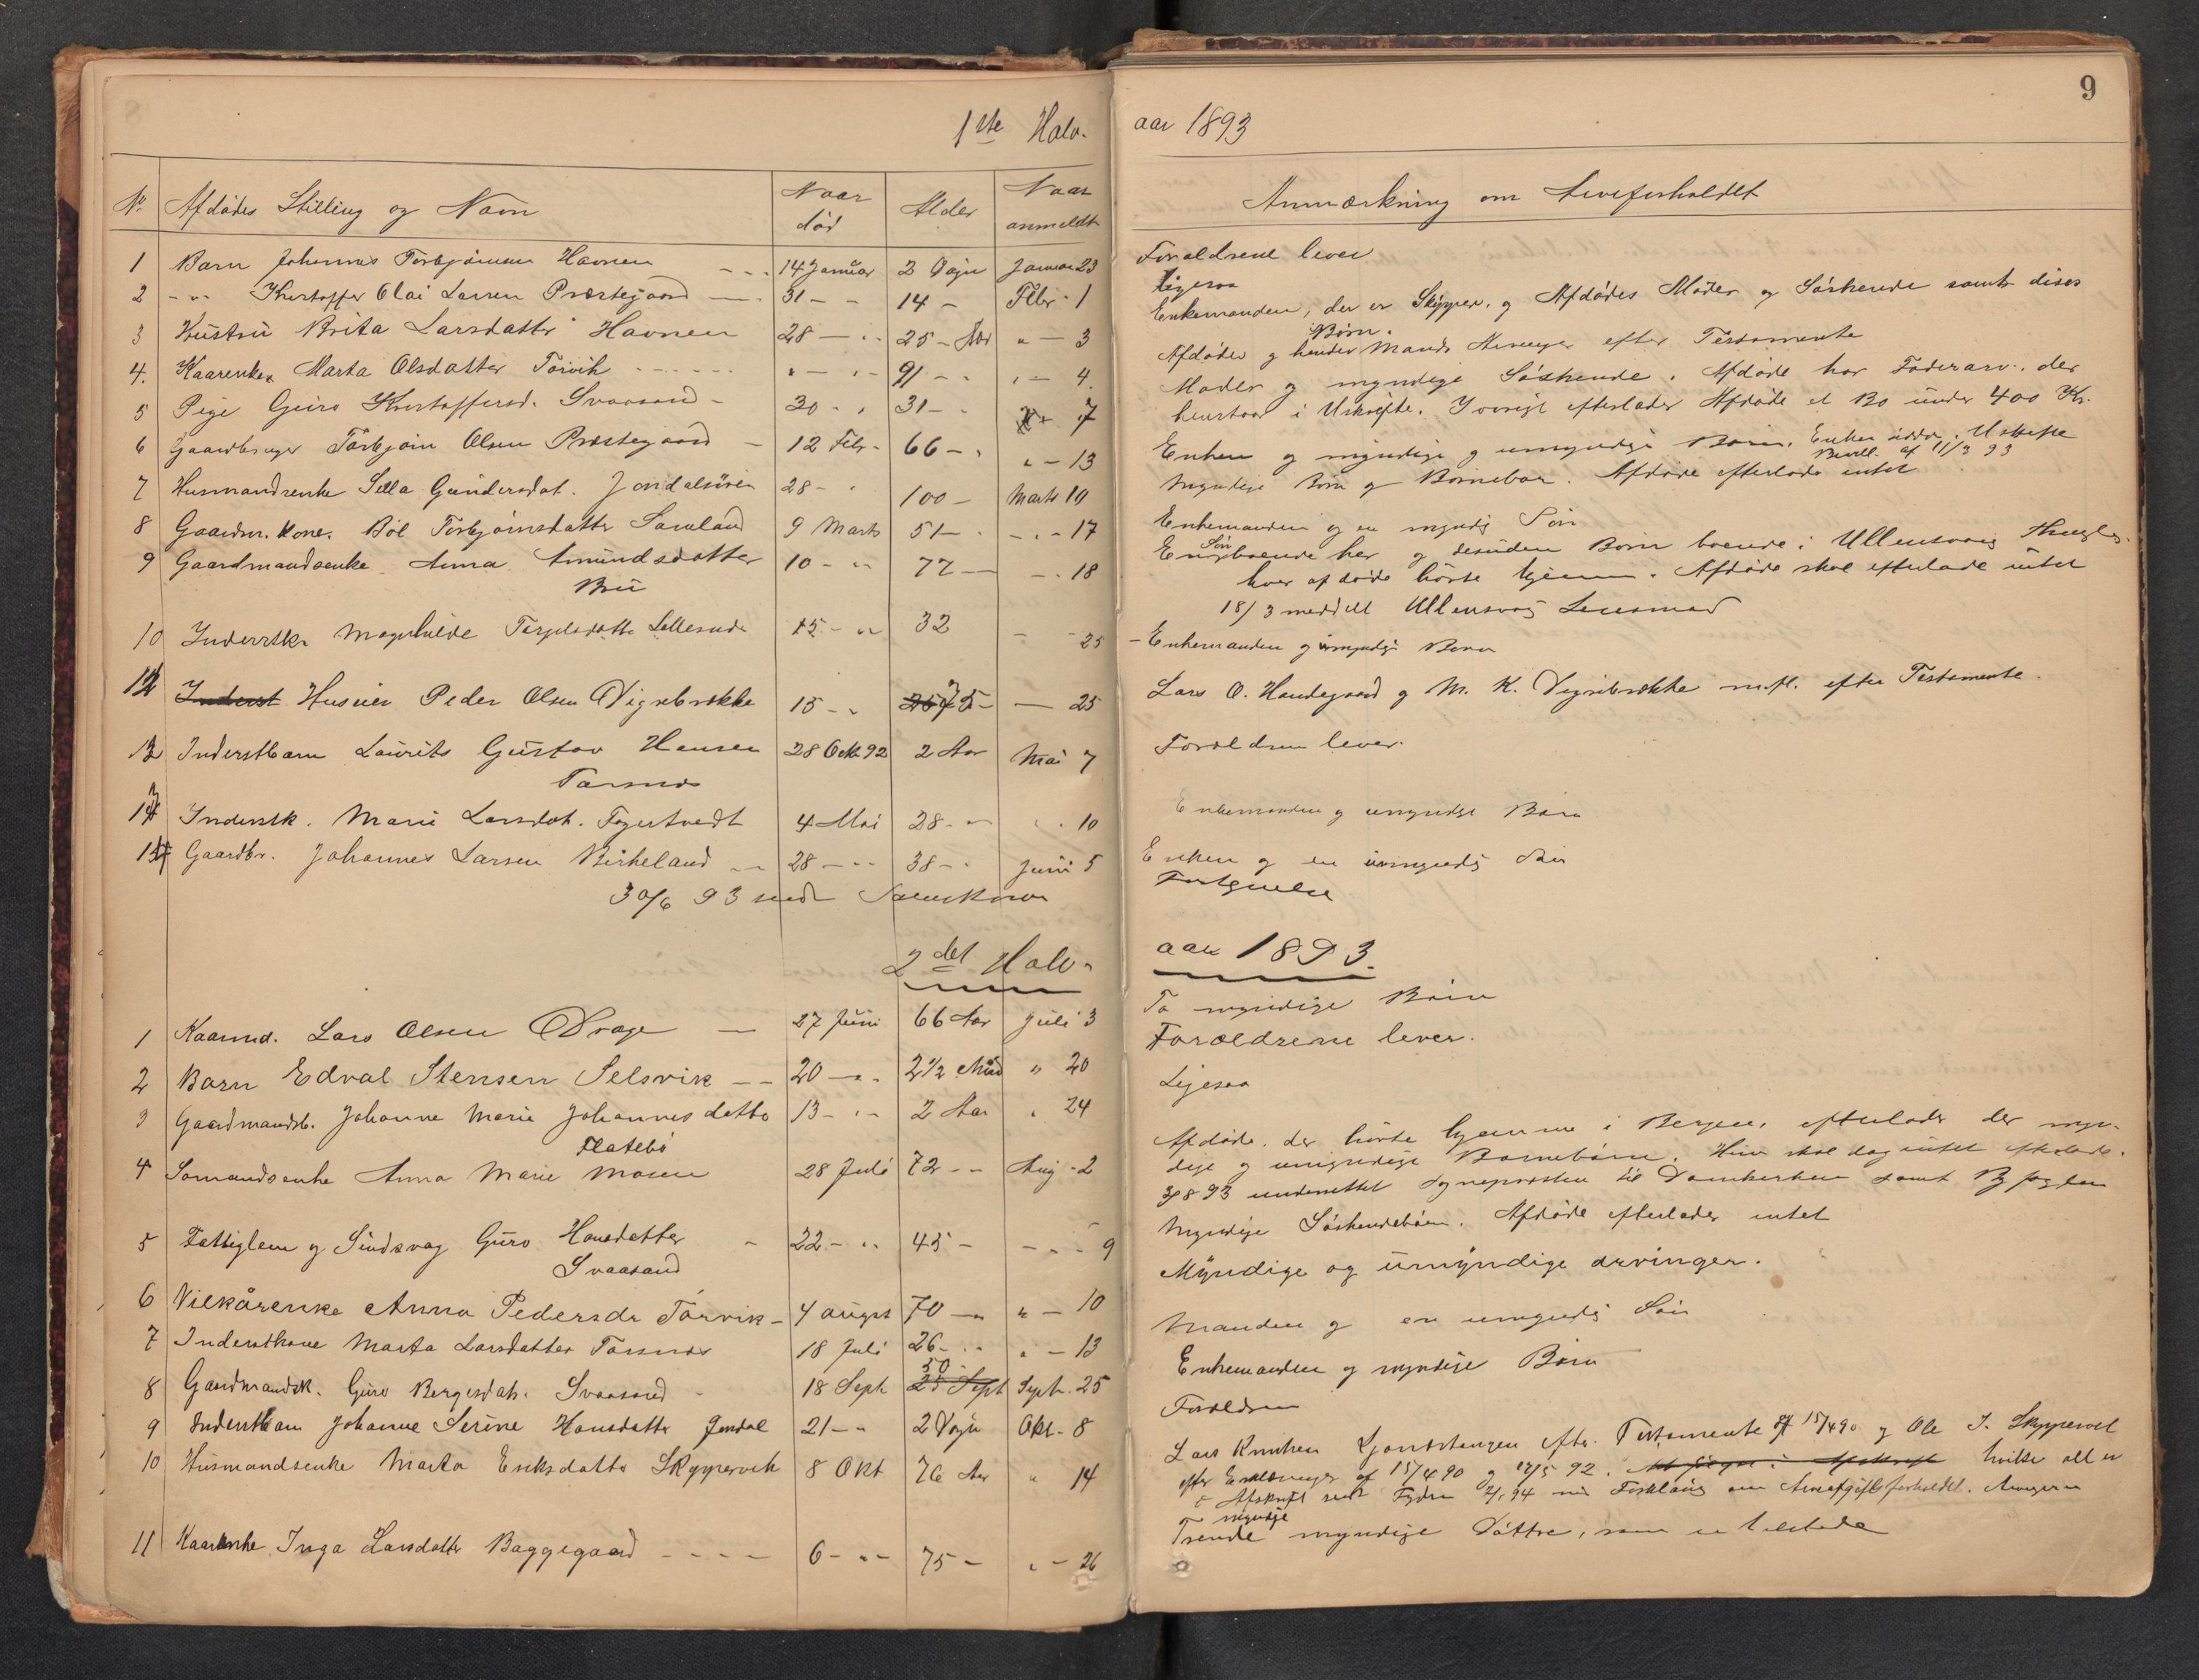 9
1ste Halv-
aar 1893
No. Afdødes Stilling og Navn Naar død Alder Naar anmeldt
1 Barn Johannes Torbjørnsen Havnen 14 Januar 2 Dage Januar 23
2 - " - Kristoffer Olai Larsen Præstegaard 31 - - 14 - Febr. 1
3 Hustru Brita Larsdatter Havnen 28 - " - 25 - Aar " - 3
4. Kaarenke Marta Olsdatter Torvik " - " - 91 - - " - 4
5 Pige Guro Kristoffersd. Svaasand - 30 - " 31 - - 7
6 Gaardbruger Torbjørn Olsen Præstegaard - 12 Febr - 66 - - " - 13
7 Husmandsenke Sella Gundersdat. Jondalsøren 28 - " 100 - Marts 10
8 Gaardm. Kone. Bøl Torbjørnsdatter Samland 9 Marts 51 - - - " - 17
9 Gaardmandsenke Anna Amundsdatter 10 - " - 77 - - " 18
Bru
10 Inderstk. Magnhilde Torgilsdatter 15 - " - 32 - - 25
12 Inderst Husmer Peder Olsen Vignebrekke 15 - " 75 - - 25
13 Inderstbarn Laurits Gustav Hansen 28 Okt 92 2 Aar Mai 7
Torsnes
14 Inderstk. Marie Larsdat. Fagertvedt 4 Mai 28 - " - " . 10
15 Gaardbr. Johannes Larsen Birkeland - 28 - " - 38 - " Juni 5
30/6 93 sendt
2det Halv-
1 Kaarmd. Lars Olsen Drage - 27 Juni 66 Aar Juli 3
2 Barn Edval Stensen Selsvik - - 20 - " - 2 1/2 Mnd " 20
3 Gaardmandsb. Johanne Marie Johannesdatter 13 - " - 2 Aar " 24
Flatebø
4 Sømandsenke Anna Marie Mosen 28 Juli 72 - - Aug - 2
5 Fattiglem og Sindsvag Guro Hansdatter - 22 - " - 45 - - " - 9
Svaasand
6 Vilkårenke Anna Pedersdr Torvik - 4 august 70 - " " - 10
7 Inderstkone Marta Larsdatter Torsnes 18 Juli 26 - " - " - 13
8 Gaardmandsk. Guro Børgesdat. Svaasand - 18 Sept 50 - 25 Sept Sept. 25
9 Inderstbarn Johanne Serine Hansdatter Jondal 21 - " 2 Dage Okt - 8
10 Husmandsenke Marta Eriksdatter Skyppervik 8 Okt 76 Aar " 14
11 Kaarenke Inga Larsdatter Baggegaard - - - - 6 - " - 75 - " - 26
Anmærkning om Arveforholdet
Forældrene lever
Ligesaa
Enkemanden, der er Skipper, og Afdødes Moder og Søskende samt disses
Børn.
Afdødes og hendes Mands Arvinger efter Testamente
Moder og myndige Søskende. Afdøde har Faderarv, der
henstaar i Uskifte. Iøvrigt efterlader Afdøde et Bo under 400 Kr.
Enken og myndige og umyndige Børn. Enken sidder i Uskifte
Bevill. af 11/3 93
Myndige Børn og Børnebørn. Afdøde efterlader intet
Enkemanden og en myndig Søn
En Søn boende her og desuden Børn boende i Ullensvang
hvor afdøde hørte hjemme. Afdøde skal efterlade intet
18/3 meddelt Ullensvang Lensmand
- Enkemanden og umyndige Børn
Lars O. Handegaard og M. K. Vignebrekke m.fl. efter Testamente.
Forældrene lever.
Enkemanden og umyndige Børn
Enken og en umyndig Søn
aar 1893.
To myndige Børn
Forældrene lever.
Ligesaa
Afdøde, der hørte hjemme i Bergen, efterlader der myn-
dige og umyndige Børnebørn. Hun skal dog intet efterlade.
3/8 93 underrettet Sogneprosten til Domkirken samt Byfogden
Myndige Søskendebørn. Afdøde efterlader intet
Myndige og umyndige arvinger.
Manden og en umyndig Søn
Enkemanden og myndige Børn
Forældrene
Lars Knutsen efter Testamente af 15/4 90 og Ole J. Skyppervik
efter Erklæringer af 15/4 90 og 12/5 92. hvilke alt er
i Afskrift sendt Fogden 2/1 94 med Forklaring om Arveafgiftsforholdet. Arvingerne
myndige
Trende myndige Døttre, som er tilstede